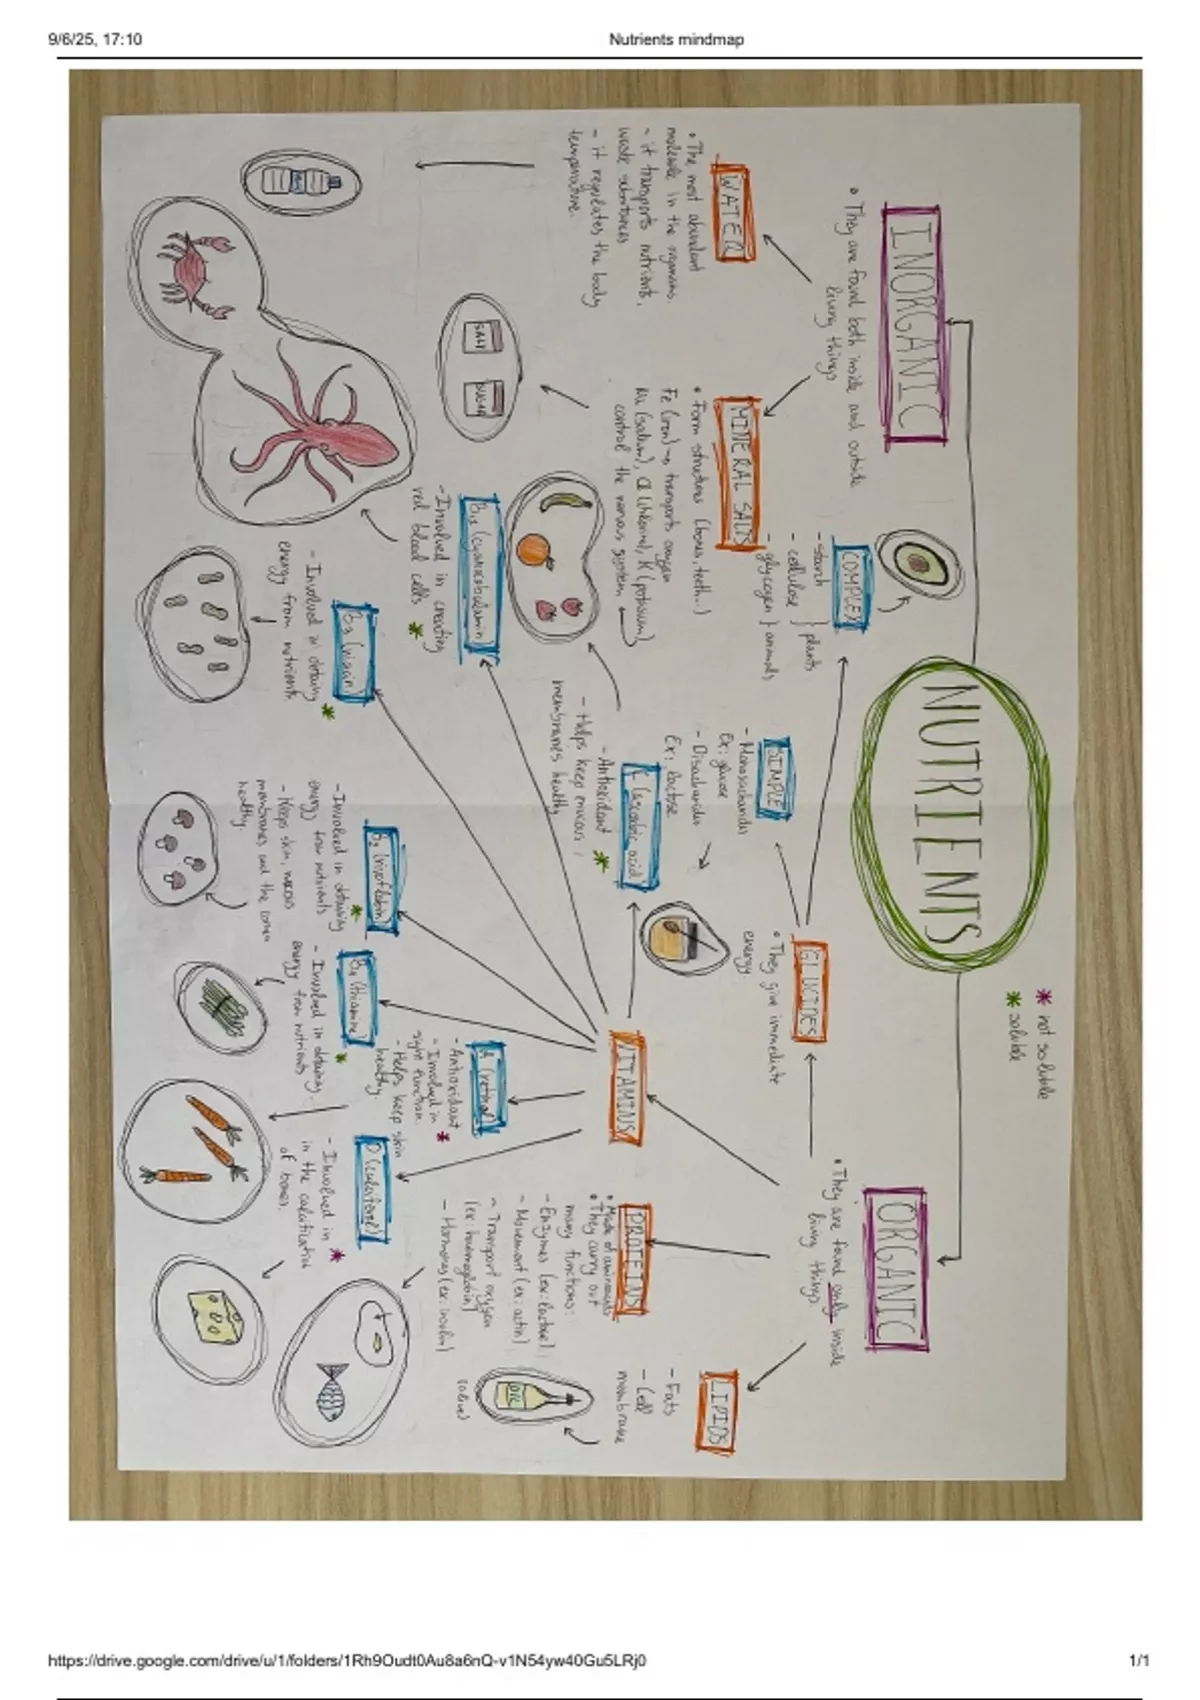 9/6/25, 17:10
Nutrients mindmap
NUTRIENTS
* not soluble
* soluble
INORGANIC
• They are found both inside and outside
living things
WATER
• The most abundant
molecule in the organisms.
- it transports nutrients,
waste substances
- it regulates the body
temperature.
MINERAL SALTS
• Form structures (bones, teeth...)
Fe (iron) → transports oxygen
Na (sodium), Cl (chlorine), K (potassium)
control the nervous system
SALT
ORGANIC
• They are found only inside
living things.
GLUCIDES
• They give immediate
energy
COMPLEX
- starch
- cellulose } plants
- glycogen } animals
SIMPLE
- Monosaccharides
Ex: glucose
- Disaccharides
Ex: lactose
VITAMINS
C (ascorbic acid)
- Antioxidant *
- Helps keep mucous
membranes healthy
B12 (cyanocobalamin)
- Involved in creating
red blood cells *
B3 (niacin)
- Involved in obtaining *
energy from nutrients
B2 (riboflabin)
- Involved in obtaining *
energy from nutrients
- Keeps skin, mucous
membranes and the cornea
healthy.
B1 (thiamine)
- Involved in obtaining *
energy from nutrients
A (retinol)
- Antioxidant *
- Involved in
sight function.
- Helps keep skin
healthy
D (calciferol)
- Involved in *
in the calcification
of bones.
PROTEINS
• They carry out
many functions:
- Enzymes (ex: lactase)
- Movement (ex: actin)
- Transport oxygen
(ex: haemoglobin)
- Hormones (ex: insulin)
LIPIDS
- Fats
- Cell
membrane
OIL
(olive)
https://drive.google.com/drive/u/1/folders/1Rh9Oudt0Au8a6nQ-v1N54yw40Gu5LRj0
1/1